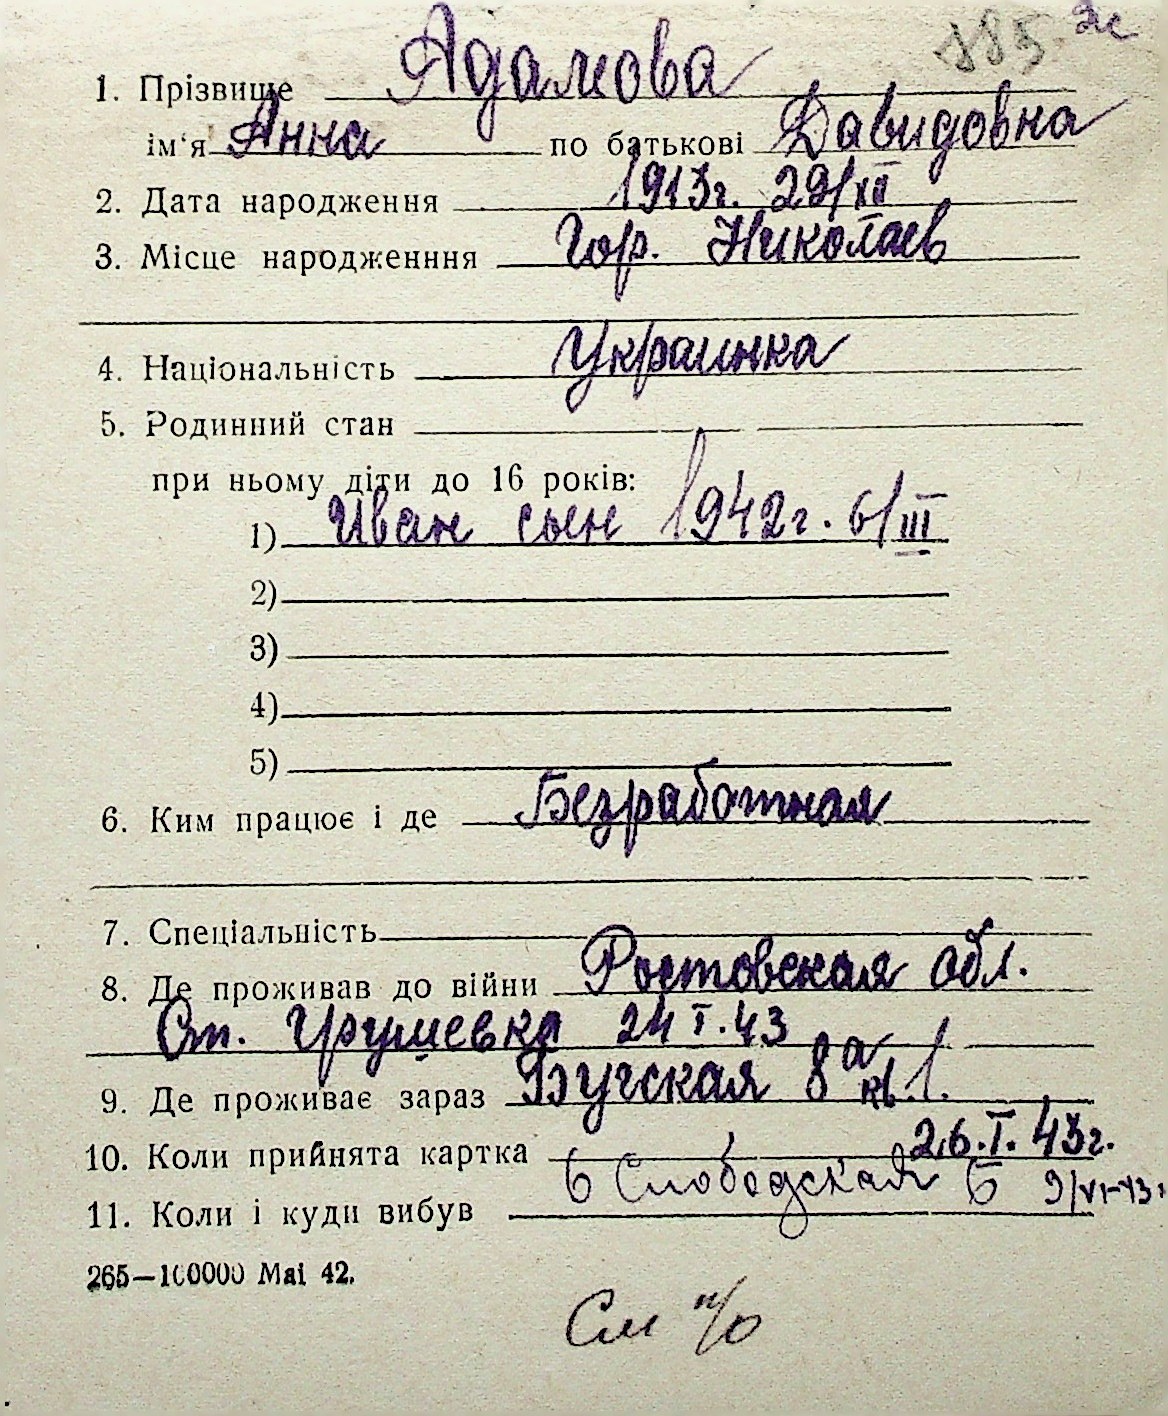 185 ж
1. Прізвище Адамова
ім'я Анна по батькові Давидовна
2. Дата народження 1913г. 29/XII
3. Місце народженння Гор. Николаев
4. Національність Украинка
5. Родинний стан
при ньому діти до 16 років:
1) Иван сын 1942г. 6/III
2)
3)
4)
5)
6. Ким працює і де Безработная
7. Спеціальність
8. Де проживав до війни Ростовская обл.
Ст. Грушевка 24 I. 43
9. Де проживає зараз Бугская 8а кв 1.
10. Коли прийнята картка 26. I. 43г.
11. Коли і куди вибув 6 Слободская 6 9/VI-43г
265—100000 Mai 42.
См н/о